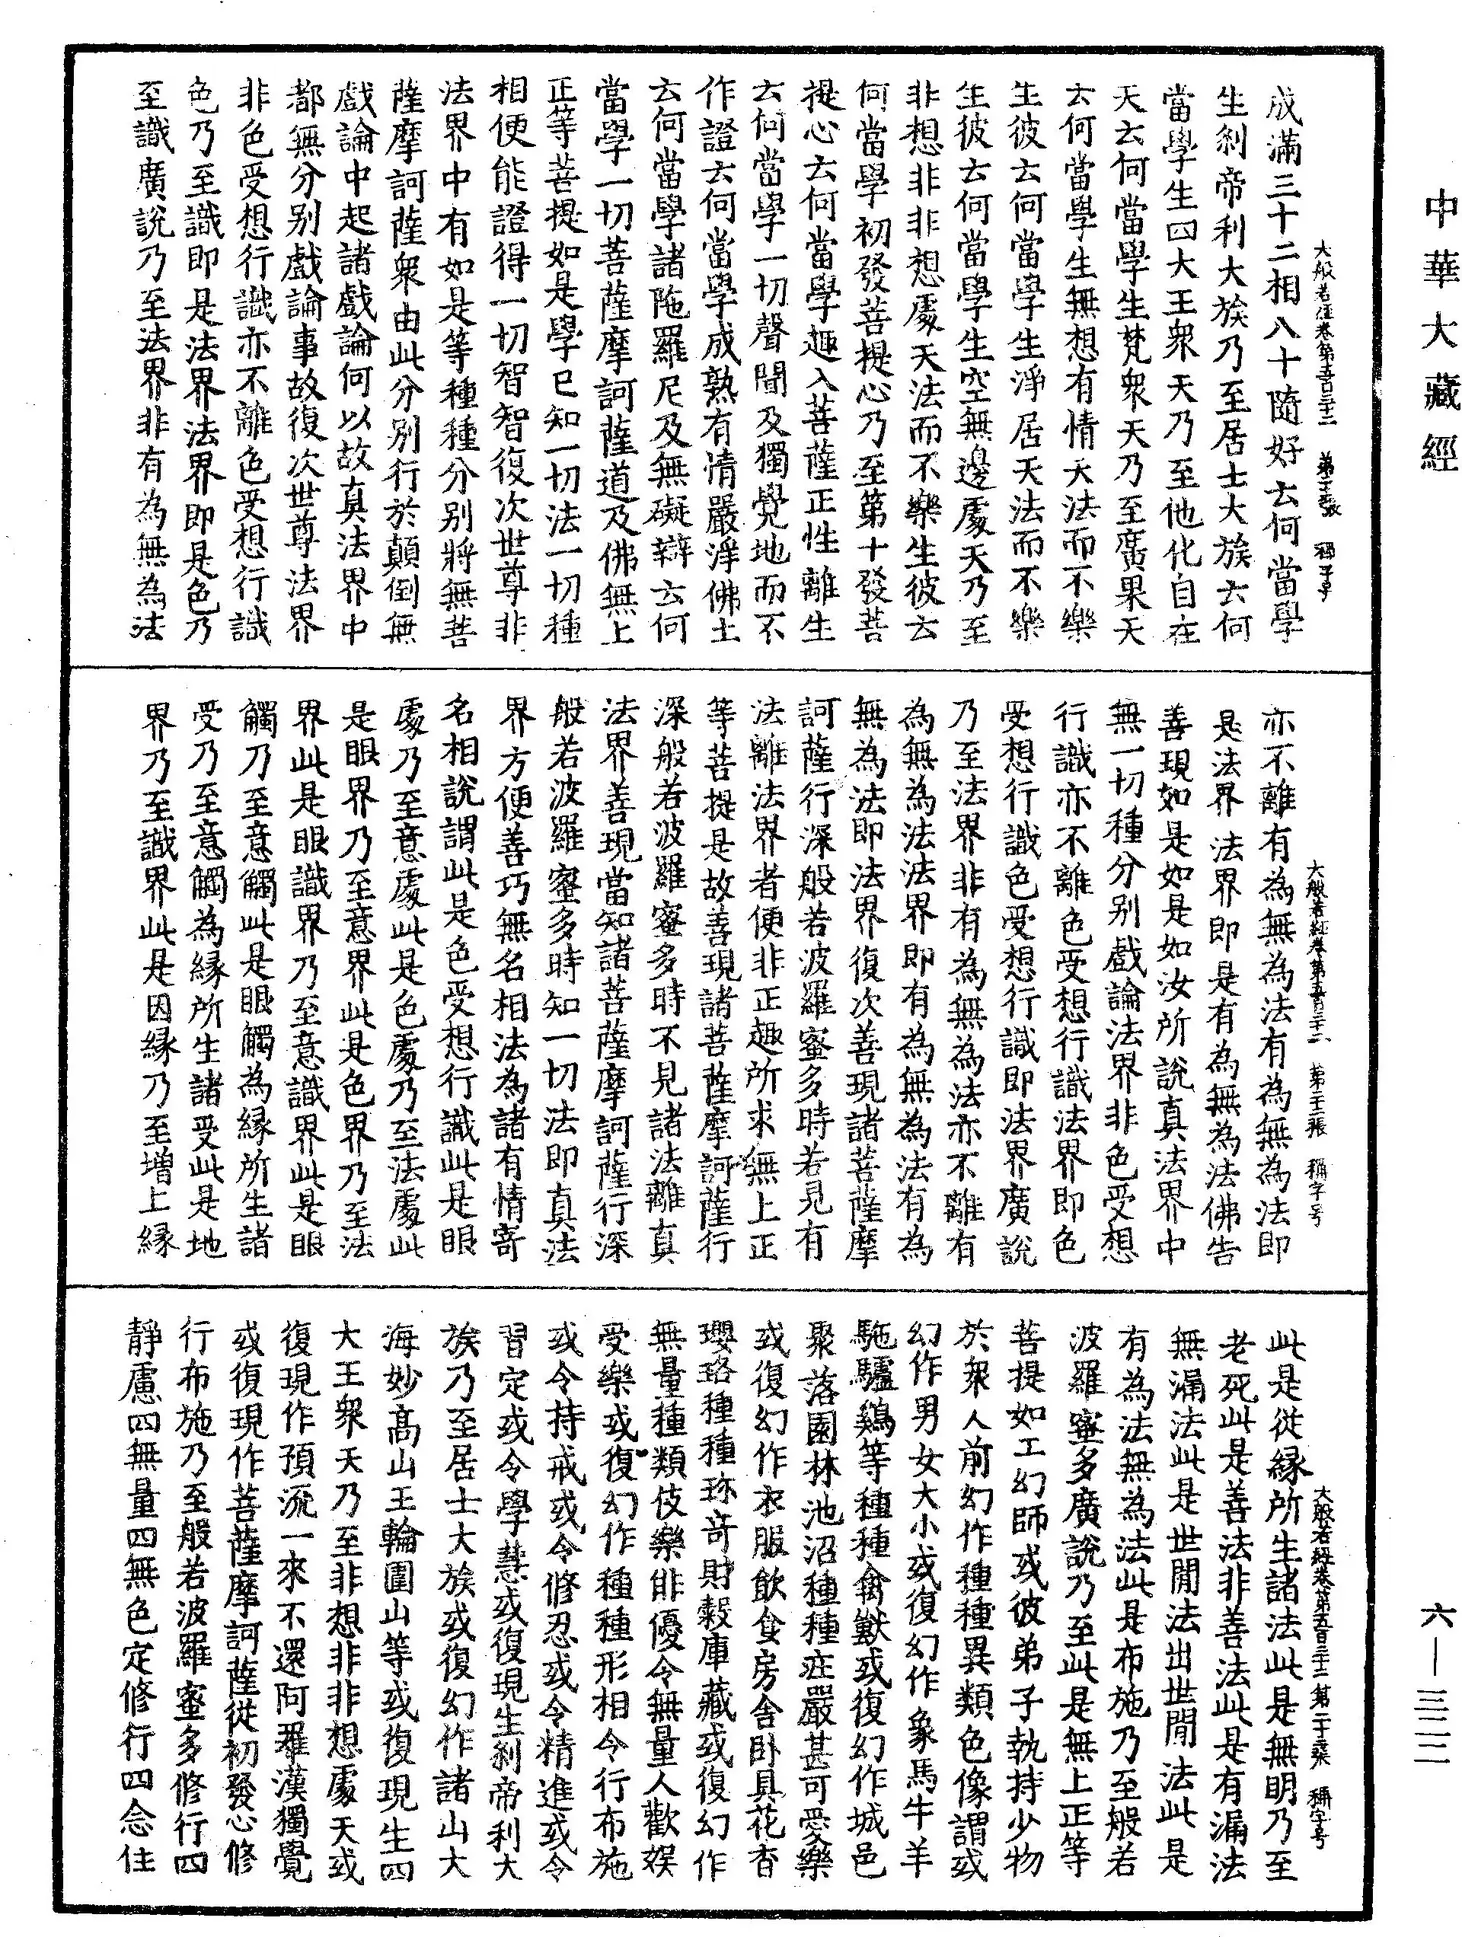 中華大藏經
大般若經卷第五百三十二 第二十張 稱字号
成滿三十二相八十隨好云何當學
生刹帝利大族乃至居士大族云何
當學生四大王衆天乃至他化自在
天云何當學生梵衆天乃至廣果天
云何當學生無想有情天法而不樂
生彼云何當學生淨居天法而不樂
生彼云何當學生空無邊處天乃至
非想非非想處天法而不樂生彼云
何當學初發菩提心乃至第十發菩
提心云何當學趣入菩薩正性離生
云何當學一切聲聞及獨覺地而不
作證云何當學成熟有情嚴淨佛土
云何當學諸陁羅尼及無礙辯云何
當學一切菩薩摩訶薩道及佛無上
正等菩提如是學已知一切法一切種
相便能證得一切智智復次世尊非
法界中有如是等種種分别將無菩
薩摩訶薩衆由此分别行於顛倒無
戲論中起諸戲論何以故真法界中
都無分别戲論事故復次世尊法界
非色受想行識亦不離色受想行識
色乃至識即是法界法界即是色乃
至識廣說乃至法界非有為無為法
大般若經卷第五百三十二 第二十一張 稱字号
亦不離有為無為法有為無為法即
是法界法界即是有為無為法佛告
善現如是如是如汝所說真法界中
無一切種分别戲論法界非色受想
行識亦不離色受想行識法界即色
受想行識色受想行識即法界廣說
乃至法界非有為無為法亦不離有
為無為法法界即有為無為法有為
無為法即法界復次善現諸菩薩摩
訶薩行深般若波羅蜜多時若見有
法離法界者便非正趣所求無上正
等菩提是故善現諸菩薩摩訶薩行
深般若波羅蜜多時不見諸法離真
法界善現當知諸菩薩摩訶薩行深
般若波羅蜜多時知一切法即真法
界方便善巧無名相法為諸有情寄
名相說謂此是色受想行識此是眼
處乃至意處此是色處乃至法處此
是眼界乃至意界此是色界乃至法
界此是眼識界乃至意識界此是眼
觸乃至意觸此是眼觸為緣所生諸
受乃至意觸為緣所生諸受此是地
界乃至識界此是因緣乃至增上緣
大般若經卷第五百三十二 第二十二張 稱字号
此是從緣所生諸法此是無明乃至
老死此是善法非善法此是有漏法
無漏法此是世間法出世間法此是
有為法無為法此是布施乃至般若
波羅蜜多廣說乃至此是無上正等
菩提如工幻師或彼弟子執持少物
於衆人前幻作種種異類色像謂或
幻作男女大小或復幻作象馬牛羊
駞驢鷄等種種禽獸或復幻作城邑
聚落園林池沼種種莊嚴甚可愛樂
或復幻作衣服飲食房舍卧具花香
瓔珞種種珎奇財糓庫藏或復幻作
無量種類伎樂俳優令無量人歡娱
受樂或復幻作種種形相令行布施
或令持戒或令修忍或令精進或令
習定或令學慧或復現生刹帝利大
族乃至居士大族或復幻作諸山大
海妙髙山王輪圍山等或復現生四
大王衆天乃至非想非非想處天或
復現作預流一來不還阿羅漢獨覺
或復現作菩薩摩訶薩從初發心修
行布施乃至般若波羅蜜多修行四
静慮四無量四無色定修行四念住
六—三二二